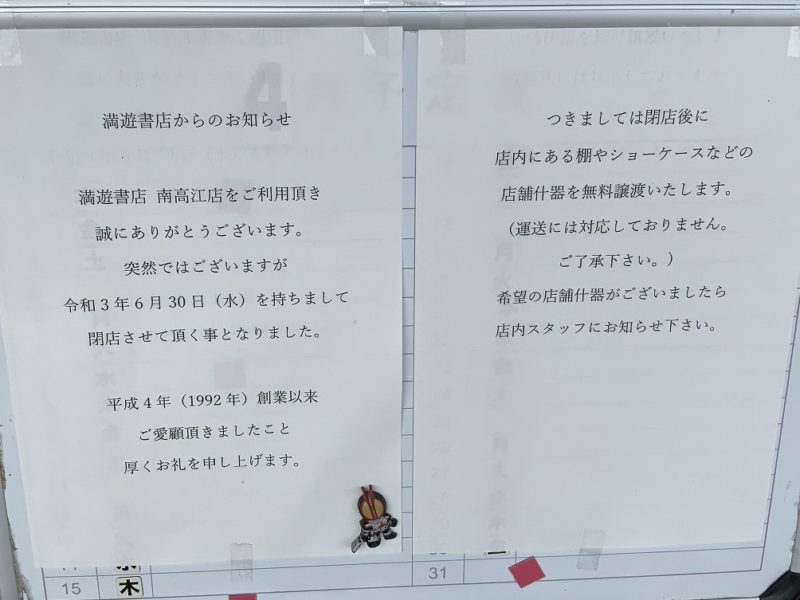 満遊書店からのお知らせ
満遊書店 南高江店をご利用頂き
誠にありがとうございます。
突然ではございますが
令和3年6月30日（水）を持ちまして
閉店させて頂く事となりました。
平成4年（1992年）創業以来
ご愛顧頂きましたこと
厚くお礼を申し上げます。
つきましては閉店後に
店内にある棚やショーケースなどの
店舗什器を無料譲渡いたします。
（運送には対応しておりません。
ご了承下さい。）
希望の店舗什器がございましたら
店内スタッフにお知らせ下さい。
15 木
31